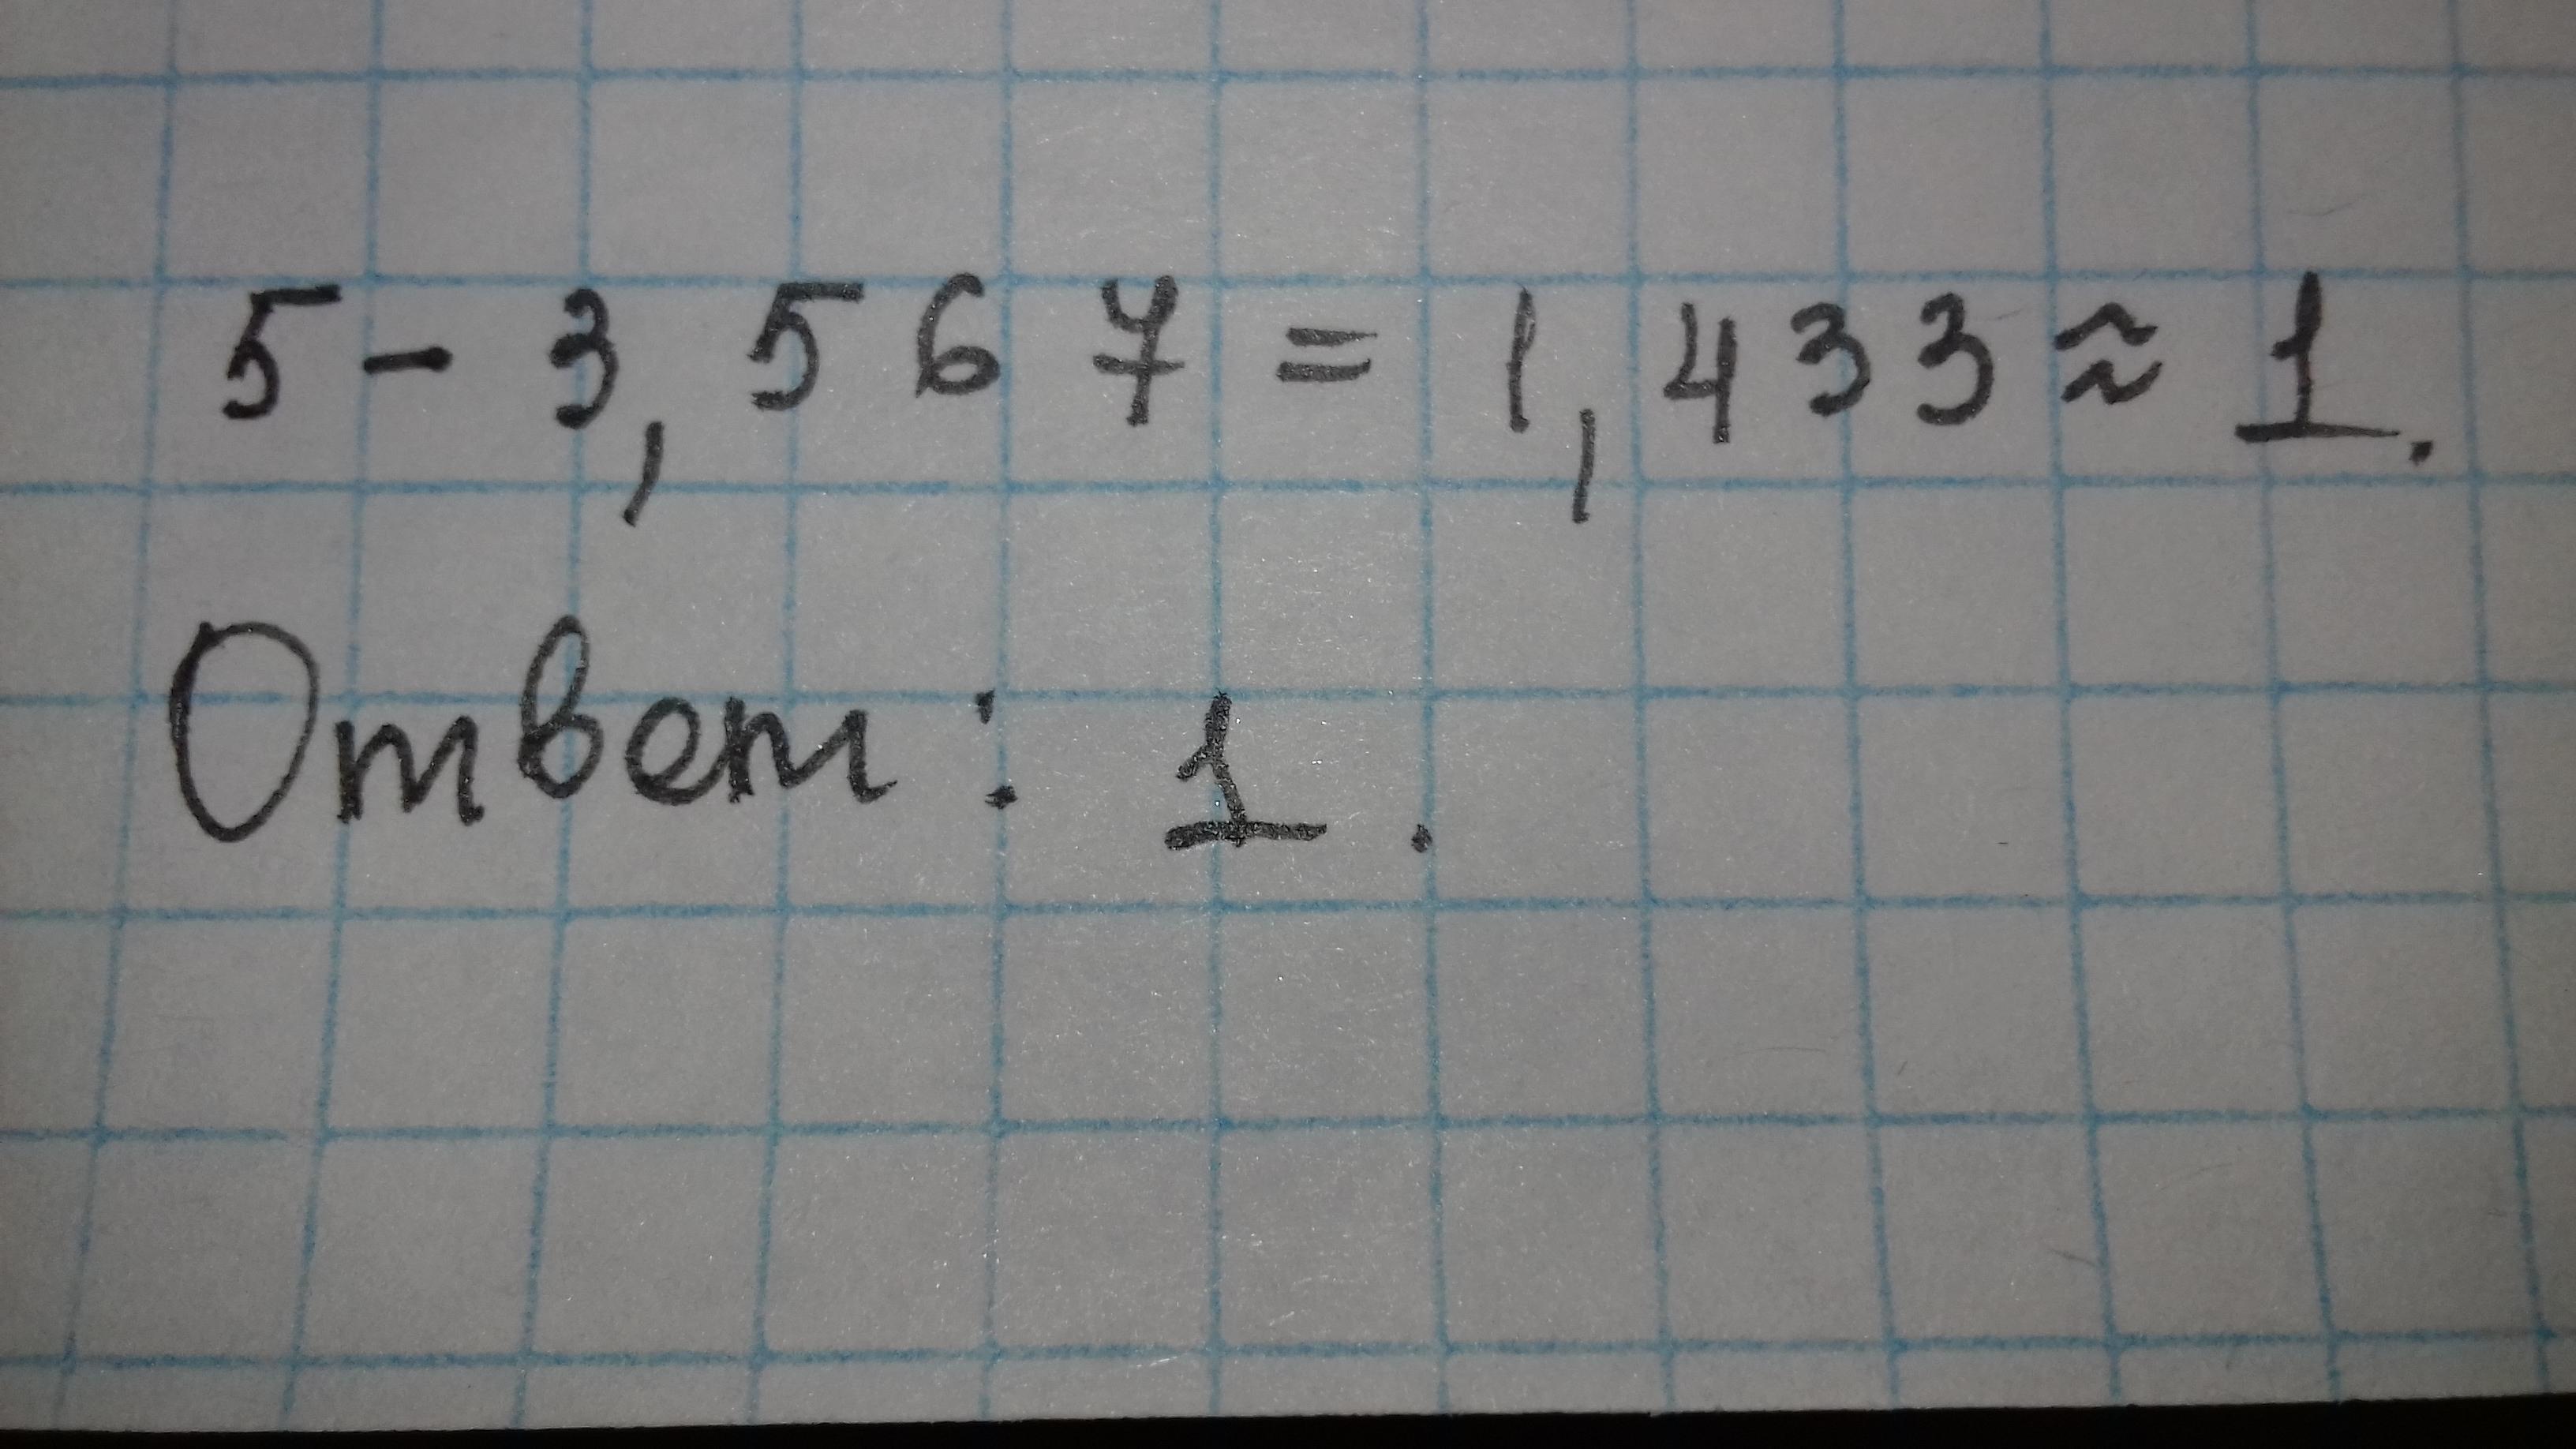 5 - 3,567 = 1,433 ≈ 1.
Ответ: 1.